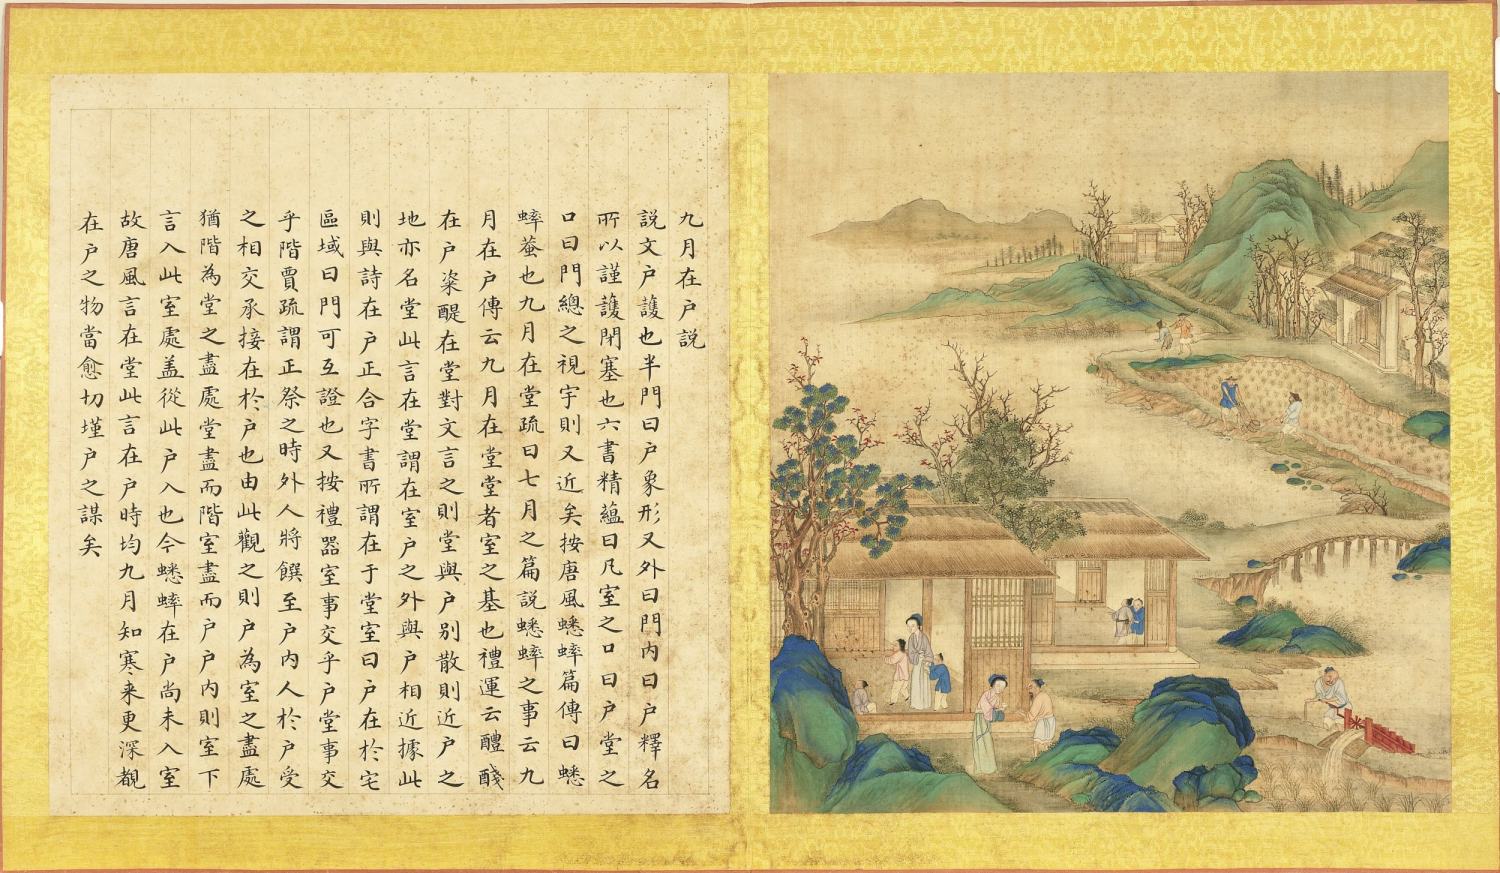 九月在户説
説文户護也半門曰户象形又外曰門内曰户釋名
所以謹護閉塞也六書精蘊曰凡室之口曰户堂之
口曰門總之視宇則又近矣按唐風蟋蟀篇傳曰蟋
蟀蛬也九月在堂疏曰七月之篇説蟋蟀之事云九
月在户傳云九月在堂堂者室之基也禮運云醴醆
在户粢醍在堂對文言之則堂與户别散則近户之
地亦名堂此言在堂謂在室户之外與户相近據此
則與詩在户正合字書所謂在于堂室曰户在於宅
區域曰門可互證也又按禮器室事交乎户堂事交
乎階賈疏謂正祭之時外人將饌至户内人於户受
之相交承接在於户也由此觀之則户為室之盡處
猶階為堂之盡處堂盡而階室盡而户户内則室下
言入此室處盖從此户入也今蟋蟀在户尚未入室
故唐風言在堂此言在户時均九月知寒来更深覩
在户之物當愈切墐户之謀矣